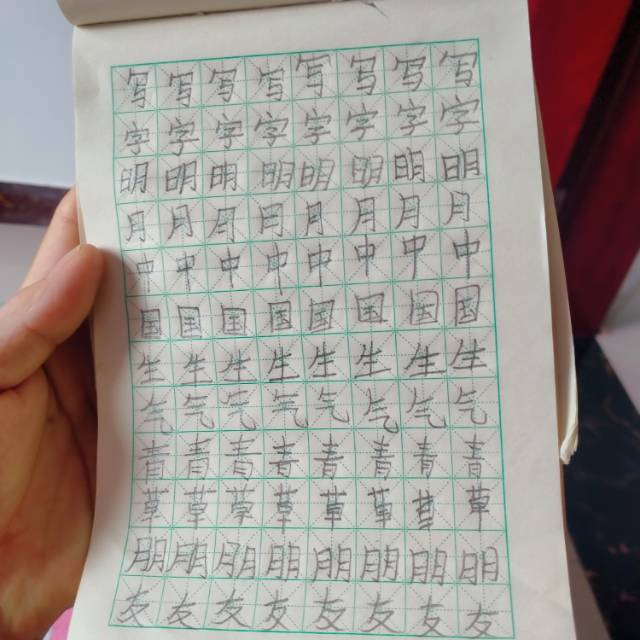 写写写写写写写写
字字字字字字字字
明明明明明明明明
月月月月月月月月
中中中中中中中中
国国国国国国国国
生生生生生生生生
气气气气气气气气
青青青青青青青青
草草草草草草草草
朋朋朋朋朋朋朋朋
友友友友友友友友